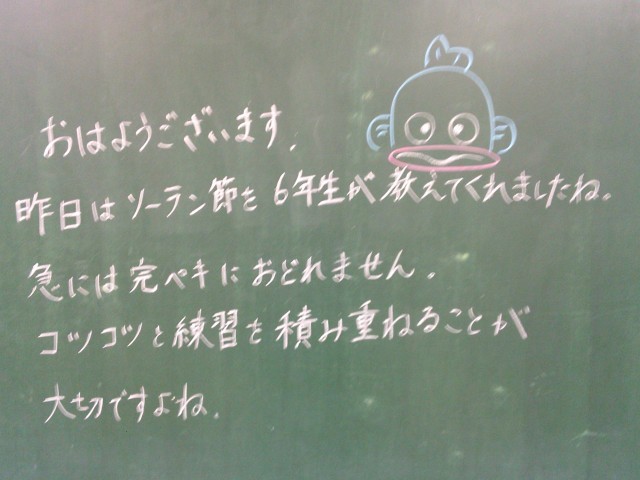 おはようございます.
昨日はソーラン節を6年生が教えてくれましたね。
急には完ペキにおどれません.
コツコツと練習を積み重ねることが
大切ですよね.